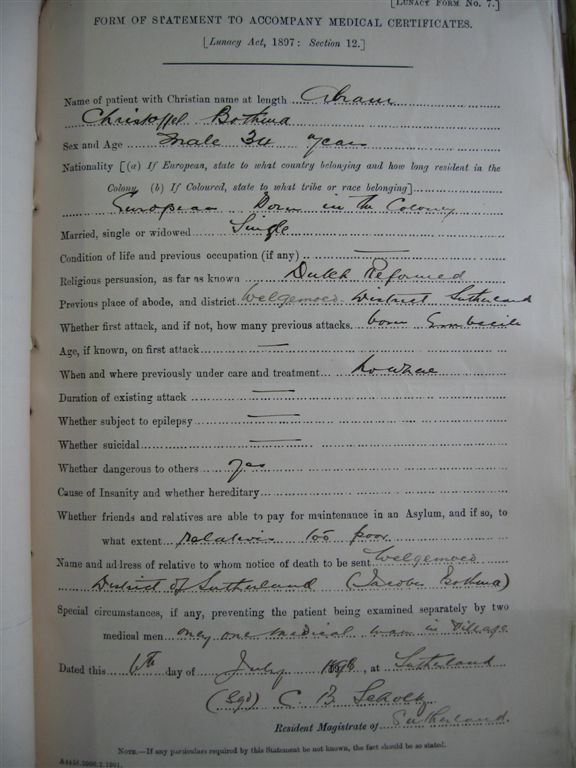 [LUNACY FORM NO. 7.]
FORM OF STATEMENT TO ACCOMPANY MEDICAL CERTIFICATES.
[Lunacy Act, 1897: Section 12.]
Name of patient with Christian name at length Abram
Christoffel Bothma
Sex and Age Male 34 years
Nationality [(a) If European, state to what country belonging and how long resident in the
Colony. (b) If Coloured, state to what tribe or race belonging]
European Born in the Colony
Married, single or widowed Single
Condition of life and previous occupation (if any) —
Religious persuasion, as far as known Dutch Reformed
Previous place of abode, and district Welgemoed District Sutherland
Whether first attack, and if not, how many previous attacks. born Imbecile
Age, if known, on first attack —
When and where previously under care and treatment nowhere
Duration of existing attack —
Whether subject to epilepsy —
Whether suicidal —
Whether dangerous to others yes
Cause of Insanity and whether hereditary
Whether friends and relatives are able to pay for maintenance in an Asylum, and if so, to
what extent relatives too poor
Name and address of relative to whom notice of death to be sent Welgemoed
District of Sutherland (Jacobus Bothma)
Special circumstances, if any, preventing the patient being examined separately by two
medical men only one medical man in village
Dated this 6th day of July, at Sutherland
(Sgd) C. B. Scholtz
Resident Magistrate of Sutherland.
NOTE.—If any particulars required by this Statement be not known, the fact should be so stated.